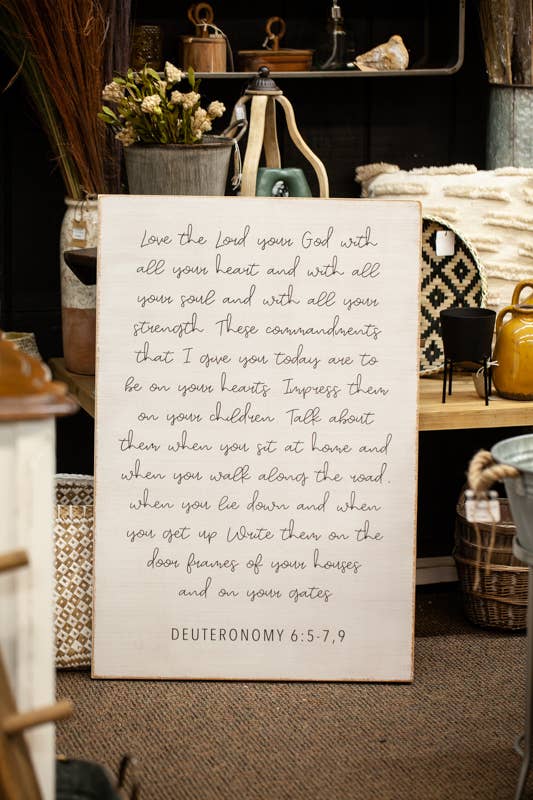 Love the Lord your God with
all your heart and with all
your soul and with all your
strength These commandments
that I give you today are to
be on your hearts Impress them
on your children Talk about
them when you sit at home and
when you walk along the road,
when you lie down and when
you get up Write them on the
door frames of your houses
and on your gates
DEUTERONOMY 6:5-7,9